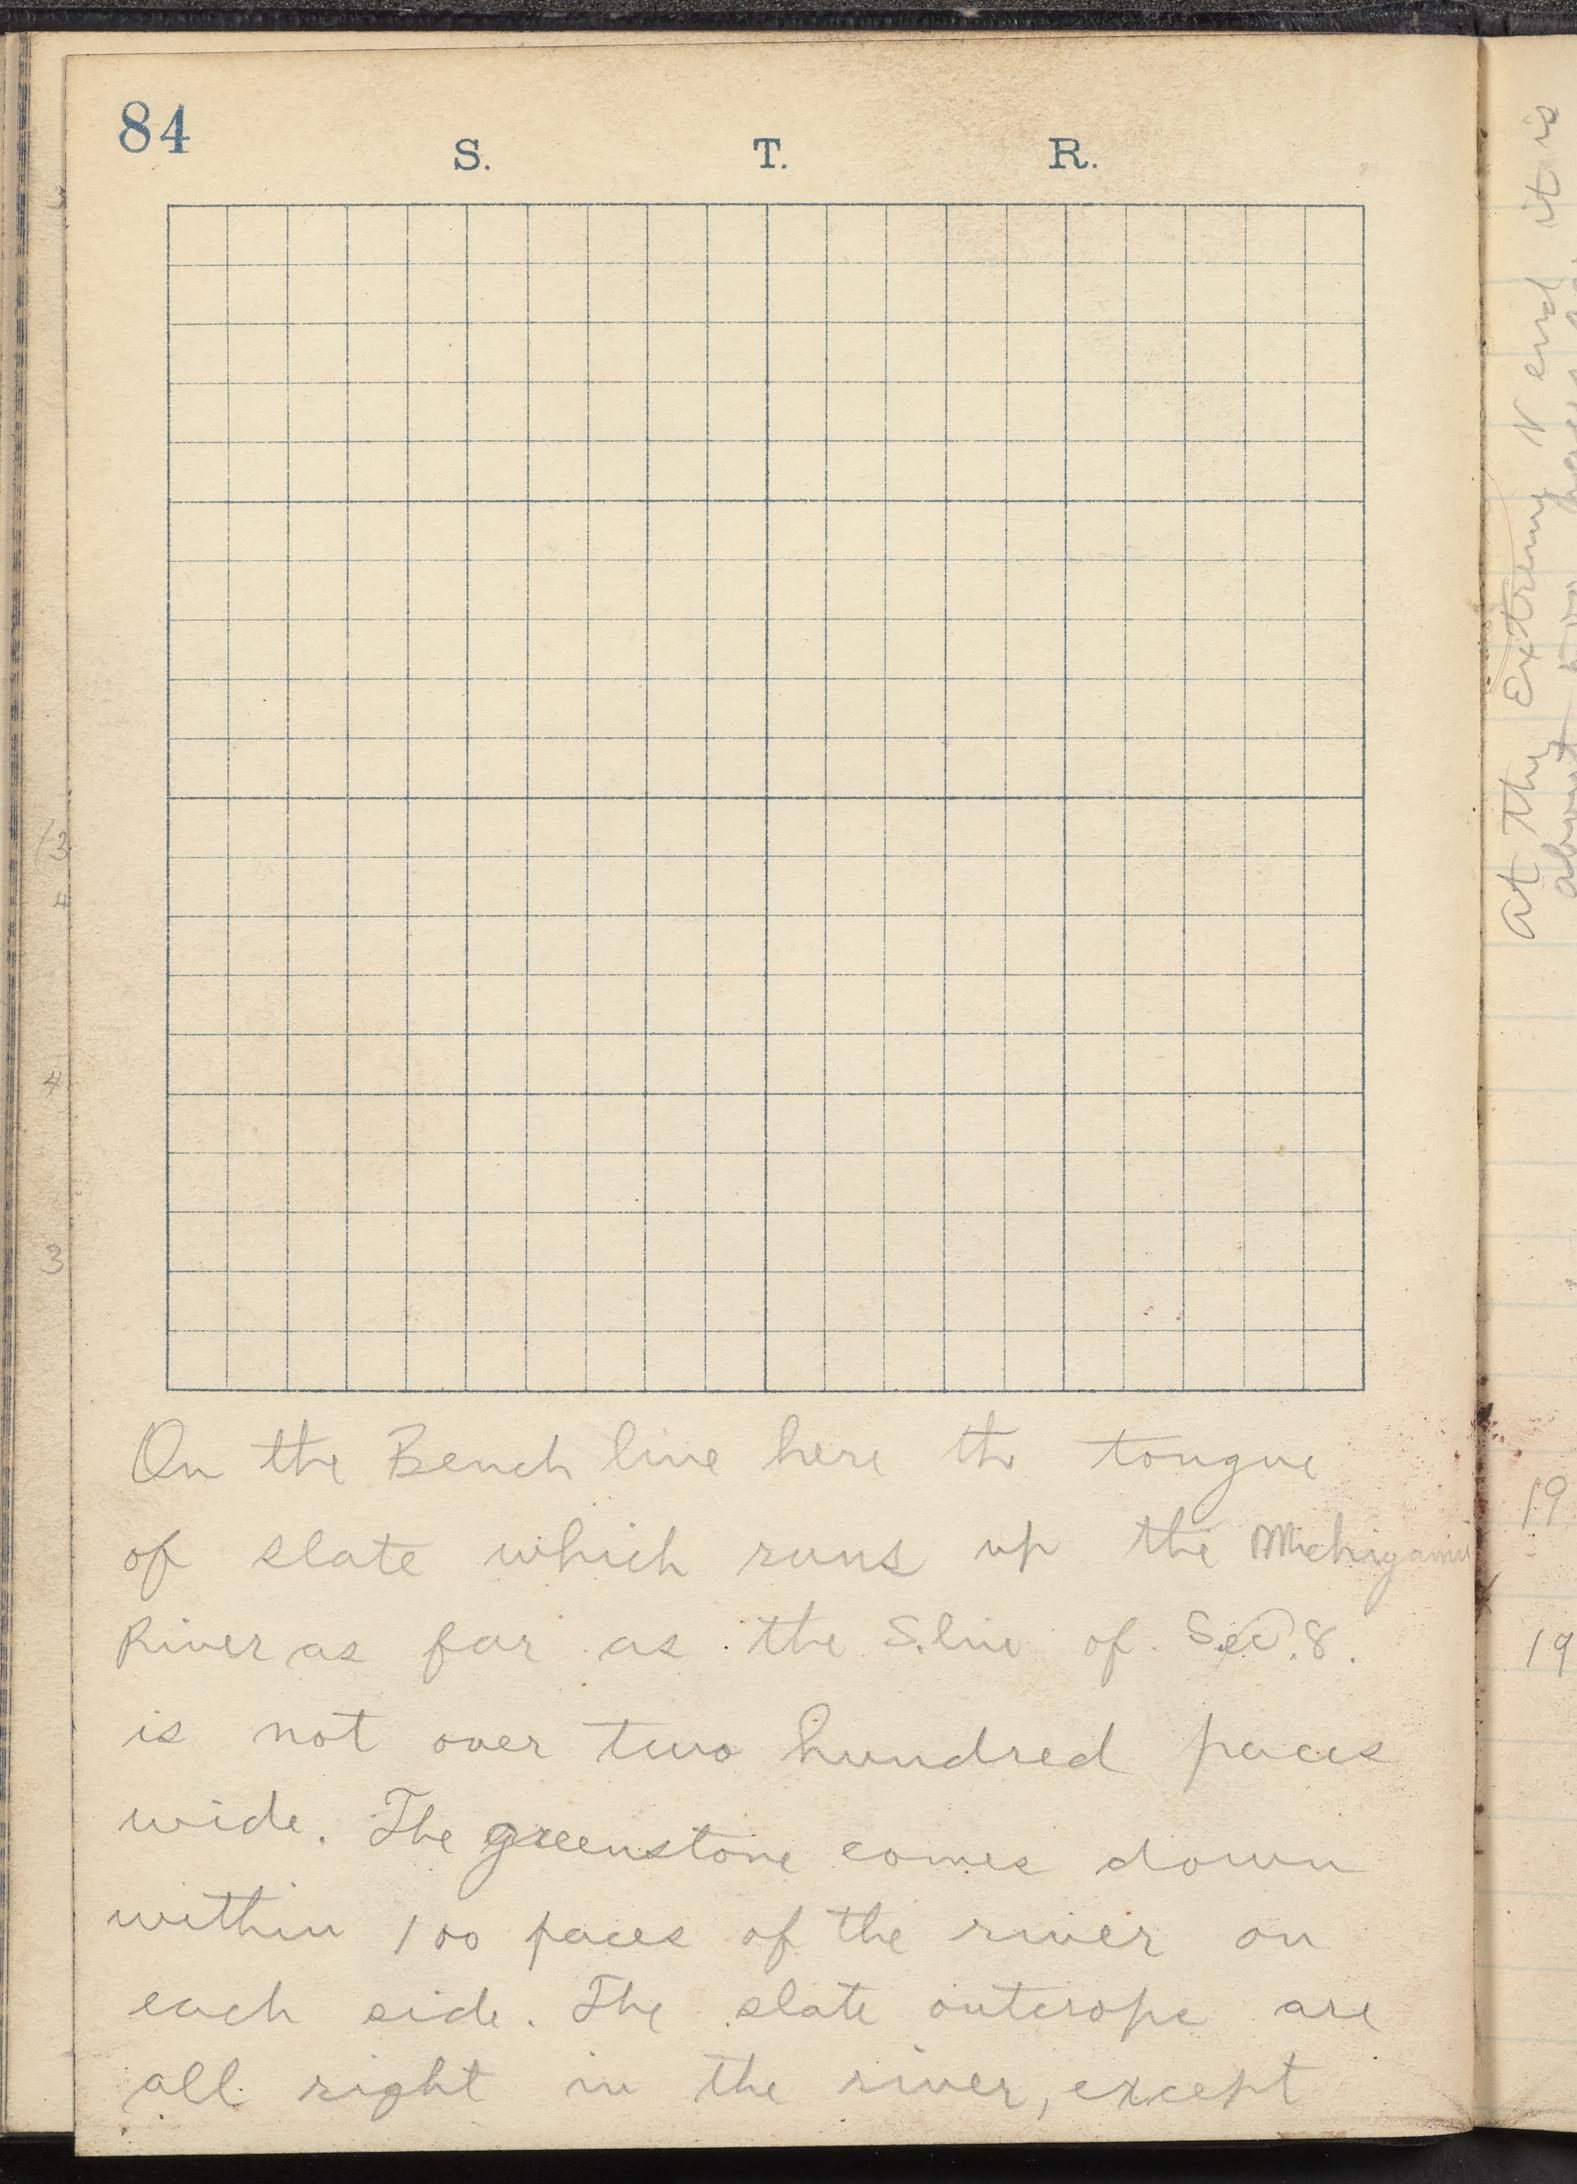 84
S. T. R.
On the Bench line here the tongue
of slate which runs up the Michigamie
River as far as the S. line of Sec. 8.
is not over two hundred paces
wide. The greenstone comes down
within 100 paces of the river on
each side. The slate outcrops are
all right in the river, except
at the Extreme N end it is
about
19
19
3
4
4
3